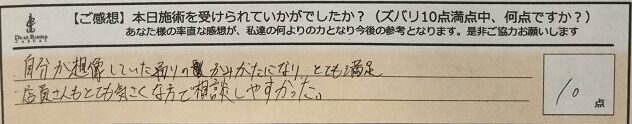 【ご感想】本日施術を受けられていかがでしたか？（ズバリ10点満点中、何点ですか？）
あなた様の率直な感想が、私達の何よりの力となり今後の参考となります。是非ご協力お願いします
・自分が想像していた通りのかみがたになり、とても満足
・店員さんもとても気さくな方で相談しやすかった。
10
点